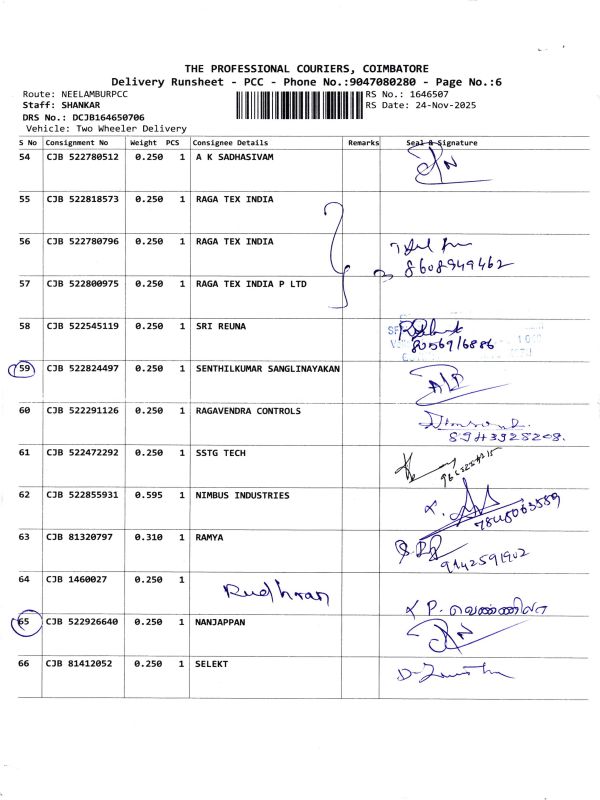 THE PROFESSIONAL COURIERS, COIMBATORE
Delivery Runsheet - PCC - Phone No.:9047080280 - Page No.:6
Route: NEELAMBURPCC RS No.: 1646507
Staff: SHANKAR RS Date: 24-Nov-2025
DRS No.: DCJB164650706
Vehicle: Two Wheeler Delivery
S No Consignment No Weight PCS Consignee Details Remarks Seal & Signature
54 CJB 522780512 0.250 1 A K SADHASIVAM
55 CJB 522818573 0.250 1 RAGA TEX INDIA
56 CJB 522780796 0.250 1 RAGA TEX INDIA
8608949462
57 CJB 522800975 0.250 1 RAGA TEX INDIA P LTD
58 CJB 522545119 0.250 1 SRI REUNA
59 CJB 522824497 0.250 1 SENTHILKUMAR SANGLINAYAKAN
60 CJB 522291126 0.250 1 RAGAVENDRA CONTROLS
61 CJB 522472292 0.250 1 SSTG TECH
62 CJB 522855931 0.595 1 NIMBUS INDUSTRIES
63 CJB 81320797 0.310 1 RAMYA
9142591902
64 CJB 1460027 0.250 1 Rudhran
P. வெண்ணிலா
65 CJB 522926640 0.250 1 NANJAPPAN
66 CJB 81412052 0.250 1 SELEKT